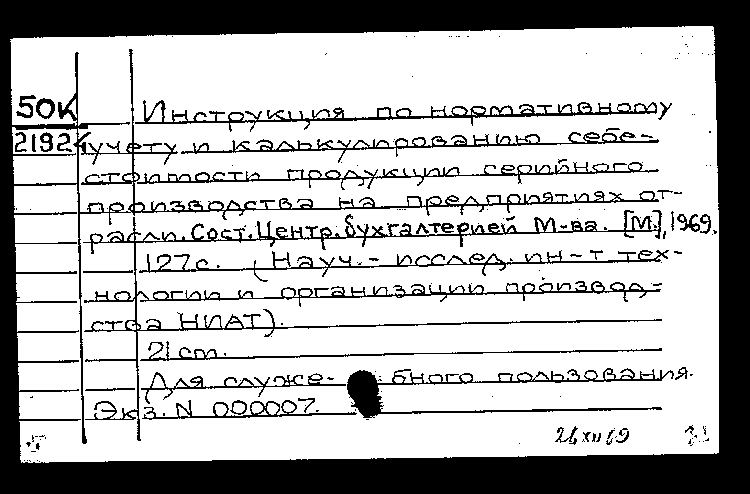 50К Инструкция по нормативному
21924 учету и калькулированию себе-
стоимости продукции серийного
производства на предприятиях от-
расли. Сост. Центр. бухгалтерией М-ва. [М.], 1969.
127 с. (Науч.- исслед. ин-т тех-
нологии и организации производ-
ства НИАТ).
21 cm.
Для служе- бного пользования.
Экз. N 000007.
26 XII 69